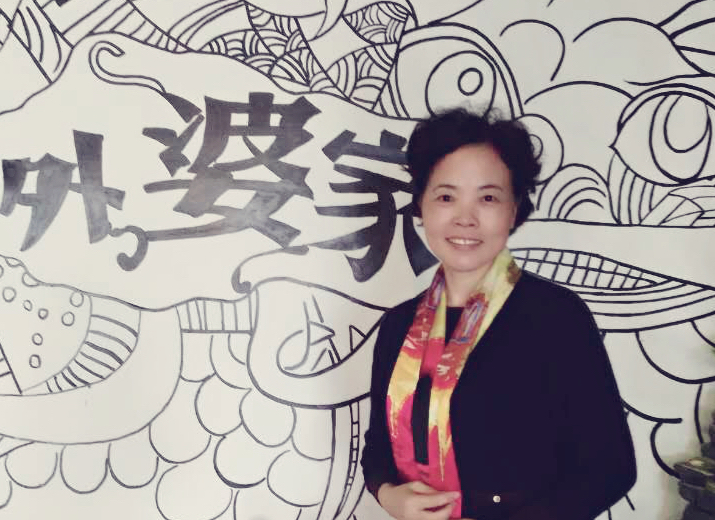 外婆家